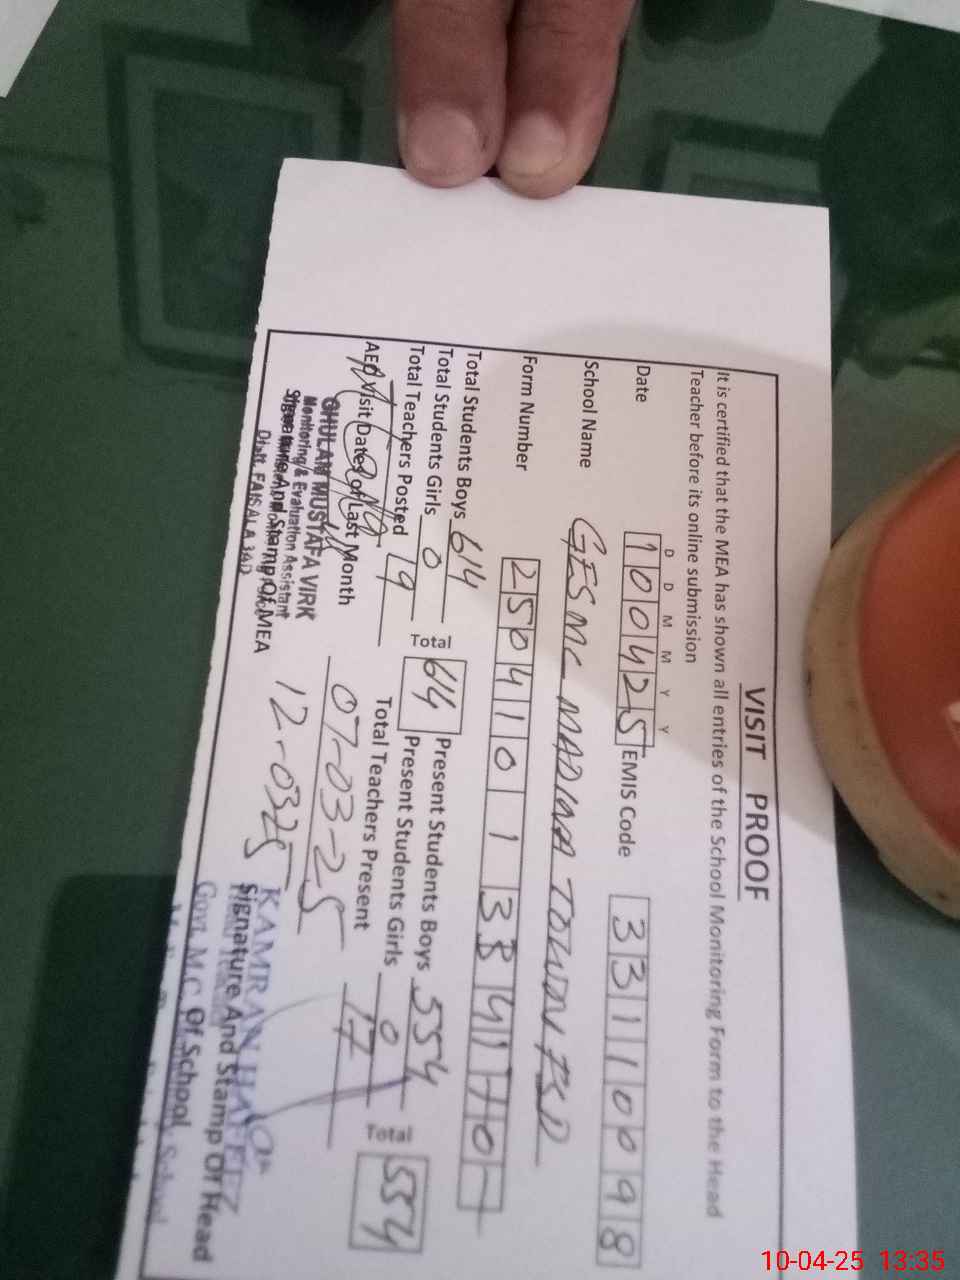 VISIT PROOF
It is certified that the MEA has shown all entries of the School Monitoring Form to the Head
Teacher before its online submission
D D M M Y Y
Date 100425 EMIS Code 33110098
School Name GES MC MADINA TOWN FSD
Form Number 2504101
Total Students Boys 614 Total 614 Present Students Boys 554 Total 554
Total Students Girls 0 Present Students Girls 0
Total Teachers Posted 19 Total Teachers Present 17
AEO Visit Dates of Last Month 07-03-25
12-0325
GHULAM MUSTAFA VIRK
Monitoring & Evaluation Assistant
Signature And Stamp Of MEA
Distt. FAISALABAD
KAMRAN HAFEEZ
Signature And Stamp Of Head
Of School
Govt. M.C.
10-04-25 13:35